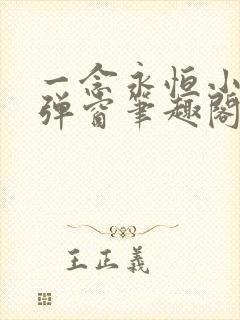 一念永恒小
弹窗笔趣阁
王正義